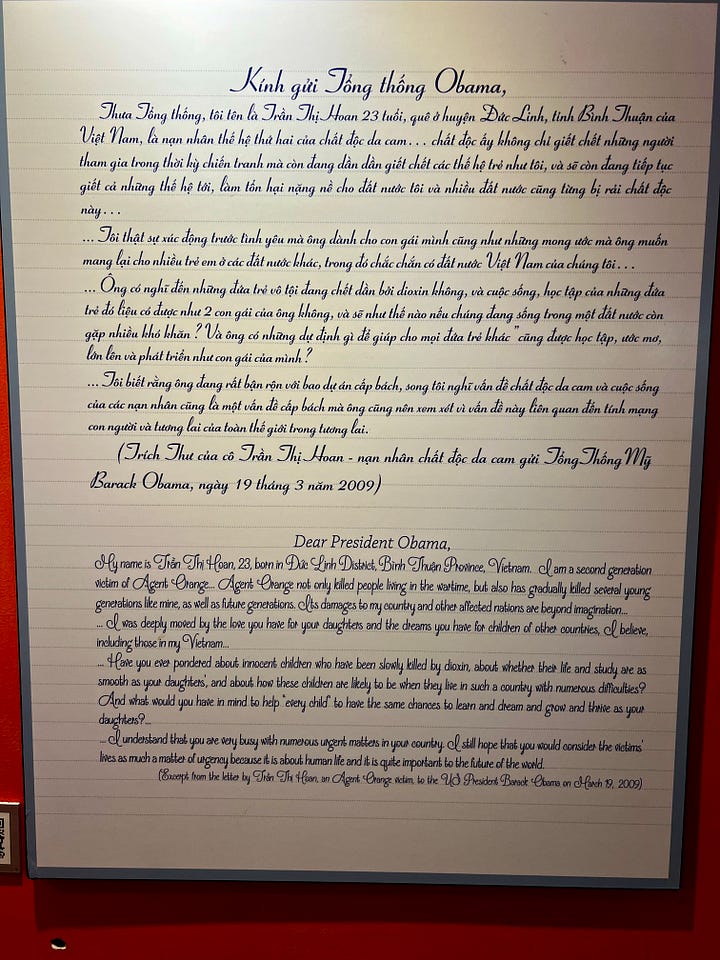 Kính gửi Tổng thống Obama,
Thưa Tổng thống, tôi tên là Trần Thị Hoan 23 tuổi, quê ở huyện Đức Linh, tỉnh Bình Thuận của
Việt Nam, là nạn nhân thế hệ thứ hai của chất độc da cam... chất độc ấy không chỉ giết chết những người
tham gia trong thời kỳ chiến tranh mà còn đang dần dần giết chết các thế hệ trẻ như tôi, và sẽ còn đang tiếp tục
giết cả những thế hệ tới, làm tổn hại nặng nề cho đất nước tôi và nhiều đất nước cũng từng bị rải chất độc
này...
... Tôi thật sự xúc động trước tình yêu mà ông dành cho con gái mình cũng như những mong ước mà ông muốn
mang lại cho nhiều trẻ em ở các đất nước khác, trong đó chắc chắn có đất nước Việt Nam của chúng tôi...
... Ông có nghĩ đến những đứa trẻ vô tội đang chết dần bởi dioxin không, và cuộc sống, học tập của những đứa
trẻ đó liệu có được như 2 con gái của ông không, và sẽ như thế nào nếu chúng đang sống trong một đất nước còn
gặp nhiều khó khăn? Và ông có những dự định gì để giúp cho mọi đứa trẻ khác "cũng được học tập, ước mơ,
lớn lên và phát triển như con gái của mình?
... Tôi biết rằng ông đang rất bận rộn với bao dự án cấp bách, song tôi nghĩ vấn đề chất độc da cam và cuộc sống
của các nạn nhân cũng là một vấn đề cấp bách mà ông cũng nên xem xét vì vấn đề này liên quan đến tính mạng
con người và tương lai của toàn thế giới trong tương lai.
(Trích Thư của cô Trần Thị Hoan - nạn nhân chất độc da cam gửi Tổng Thống Mỹ
Barack Obama, ngày 19 tháng 3 năm 2009)
Dear President Obama,
My name is Trần Thị Hoan, 23, born in Đức Linh District, Bình Thuận Province, Vietnam. I am a second generation
victim of Agent Orange... Agent Orange not only killed people living in the wartime, but also has gradually killed several young
generations like mine, as well as future generations. Its damages to my country and other affected nations are beyond imagination...
... I was deeply moved by the love you have for your daughters and the dreams you have for children of other countries, I believe,
including those in my Vietnam...
... Have you ever pondered about innocent children who have been slowly killed by dioxin, about whether their life and study are as
smooth as your daughters', and about how these children are likely to be when they live in such a country with numerous difficulties?
And what would you have in mind to help "every child" to have the same chances to learn and dream and grow and thrive as your
daughters?...
... I understand that you are very busy with numerous urgent matters in your country. I still hope that you would consider the victims'
lives as much a matter of urgency because it is about human life and it is quite important to the future of the world.
(Excerpt from the letter by Trần Thị Hoan, an Agent Orange victim, to the US President Barack Obama on March 19, 2009)